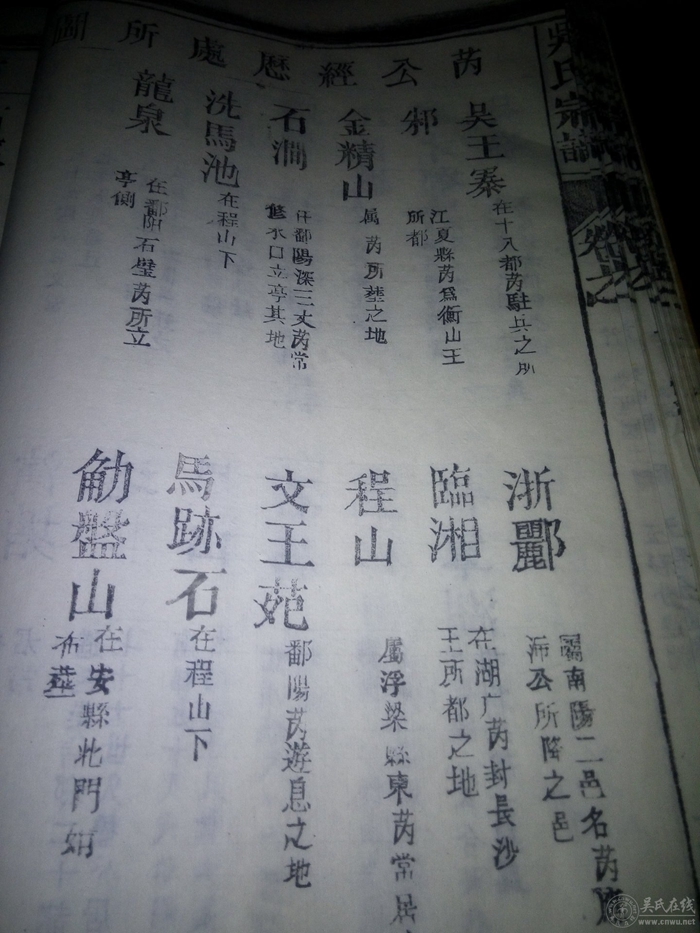 吳氏宗譜
卷之
芮公經歷處所圖
吳王寨
在十八都芮駐兵之所
浙酈
屬南陽二邑名芮
沛公所降之邑
邾
江夏縣芮為衡山王
所都
臨湘
在湖广芮封長沙
王所都之地
金精山
属芮所塟之地
程山
屬浮梁縣東芮常居
石澗
在鄱陽深三丈芮常
修水口立亭其地
文王苑
鄱陽芮遊息之地
洗馬池
在程山下
馬跡石
在程山下
龍泉
在鄱陽石壁芮所立
亭側
觔盤山
在安縣北門
塟
吴氏在线
www.cnwu.net